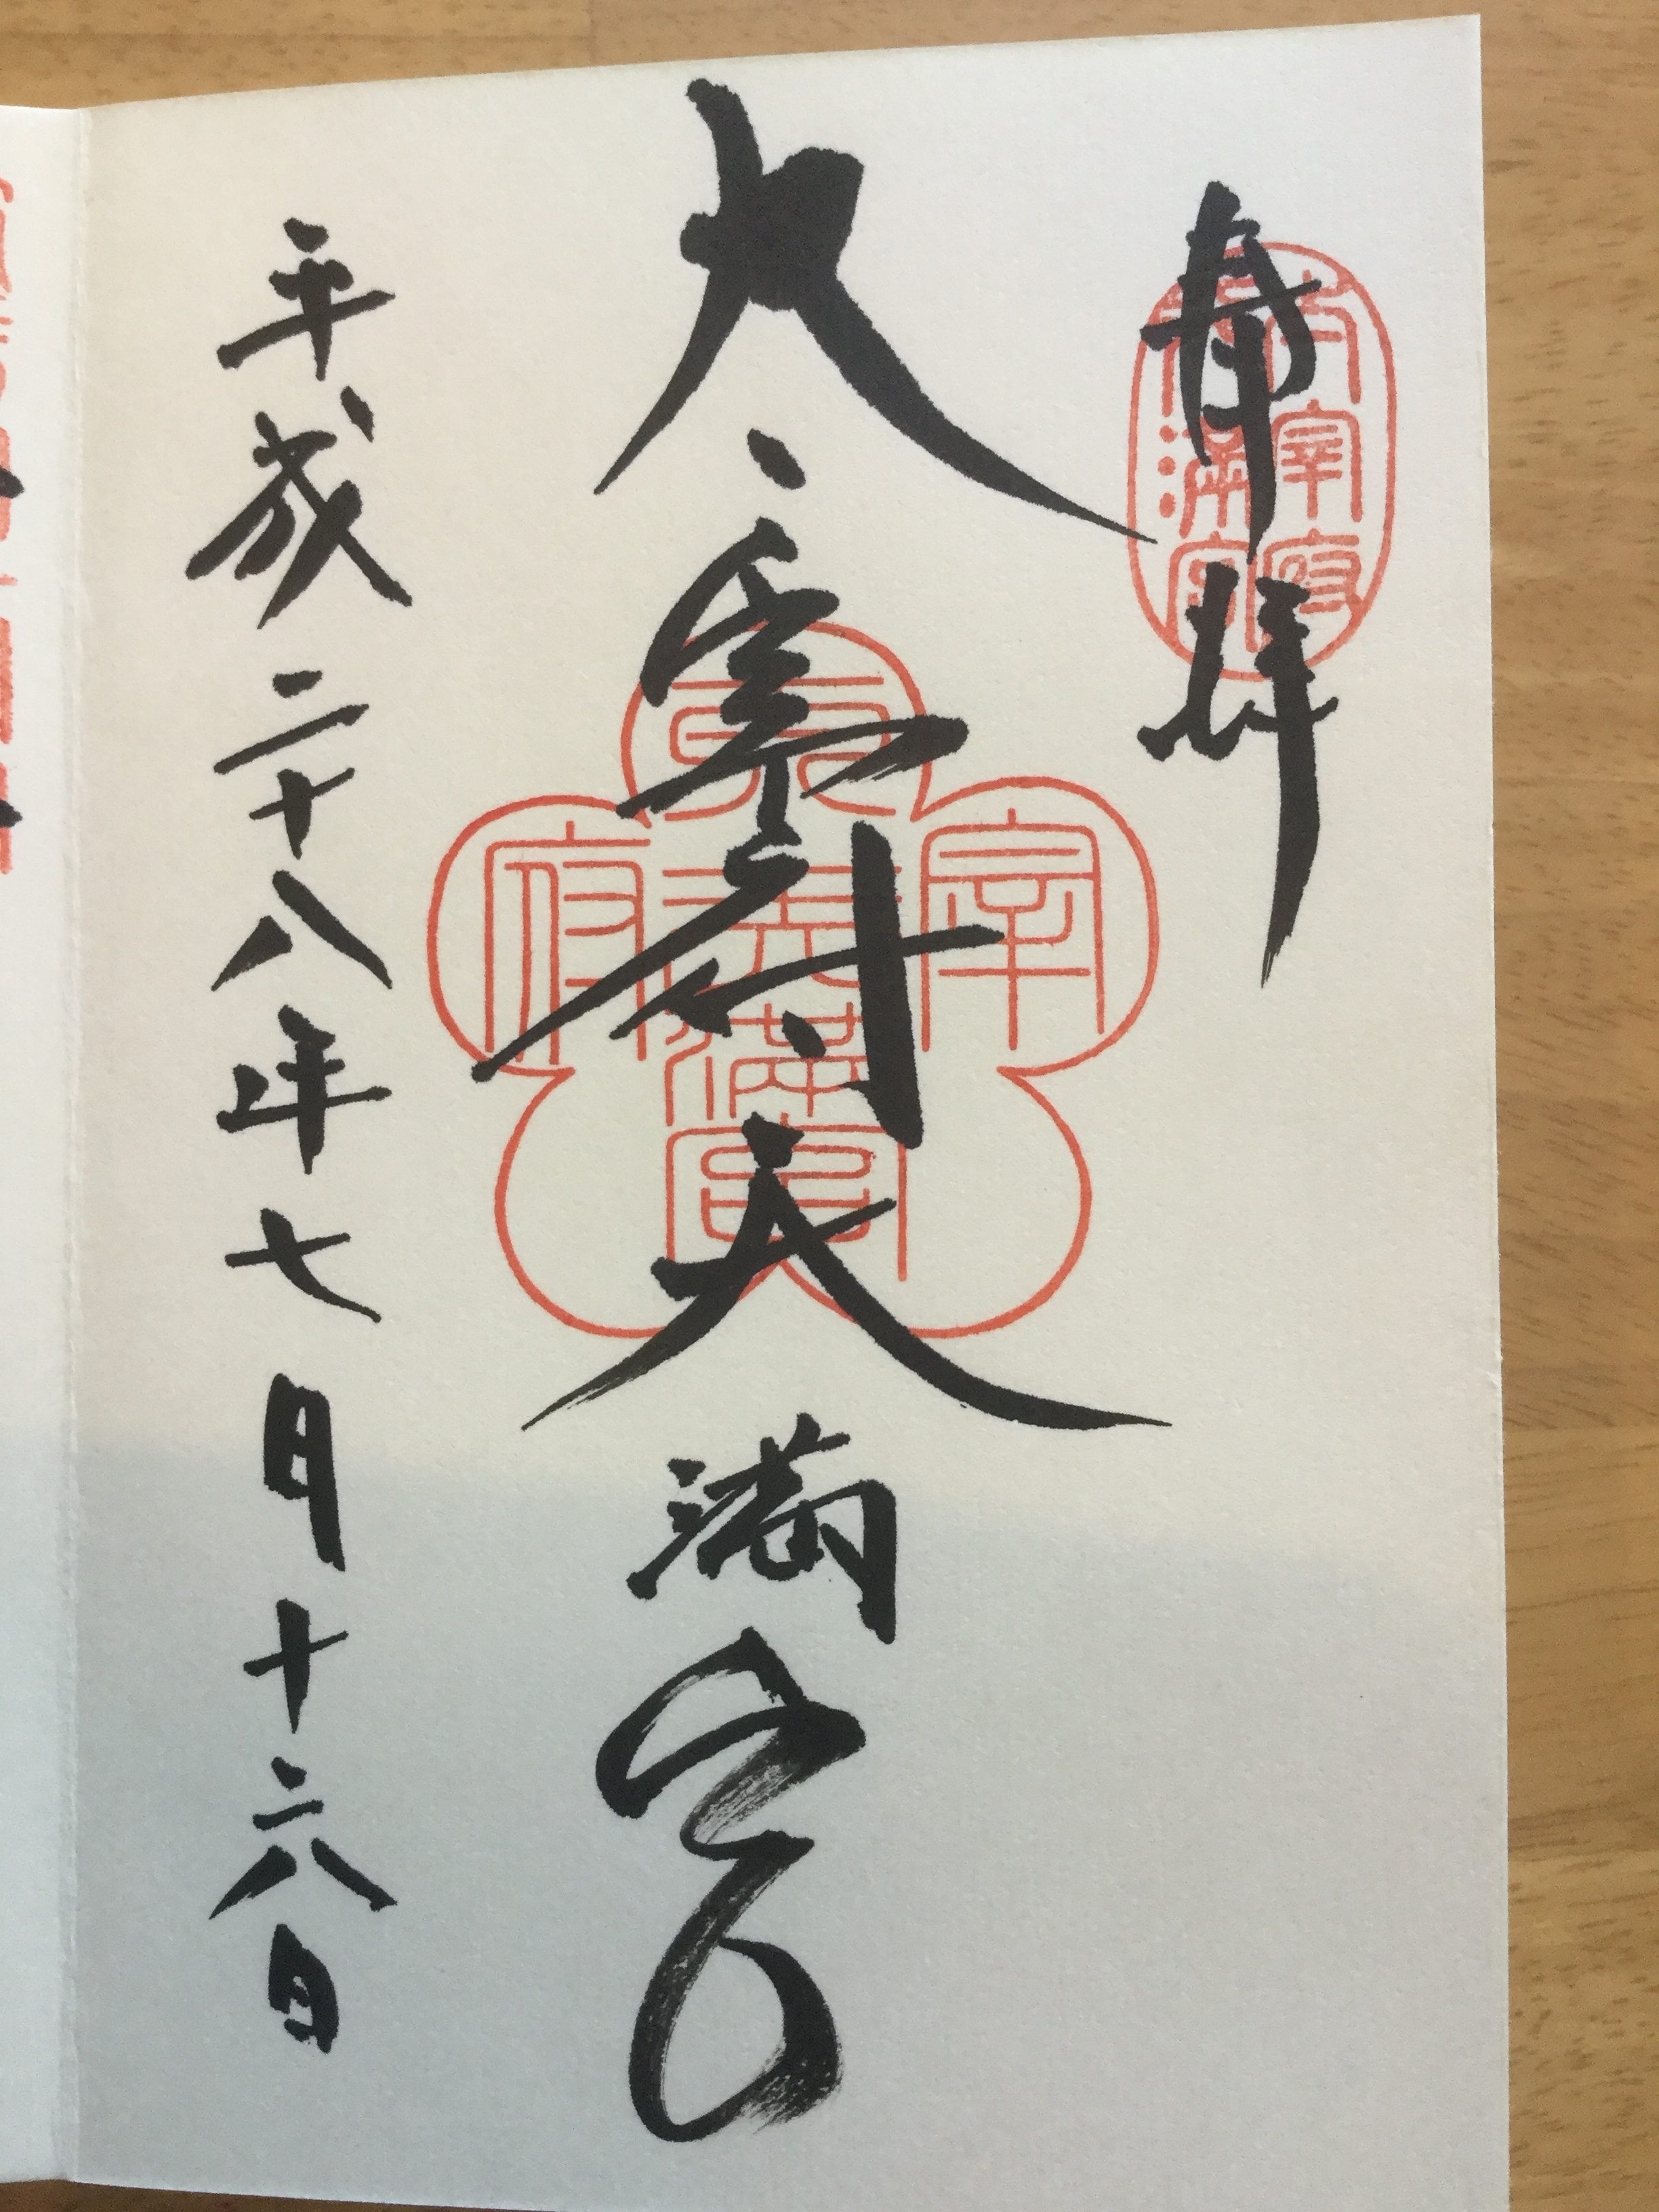 奉拝
太宰府
天満宮
太宰府天満宮
宰
府
天満宮
平成二十八年七月十六日